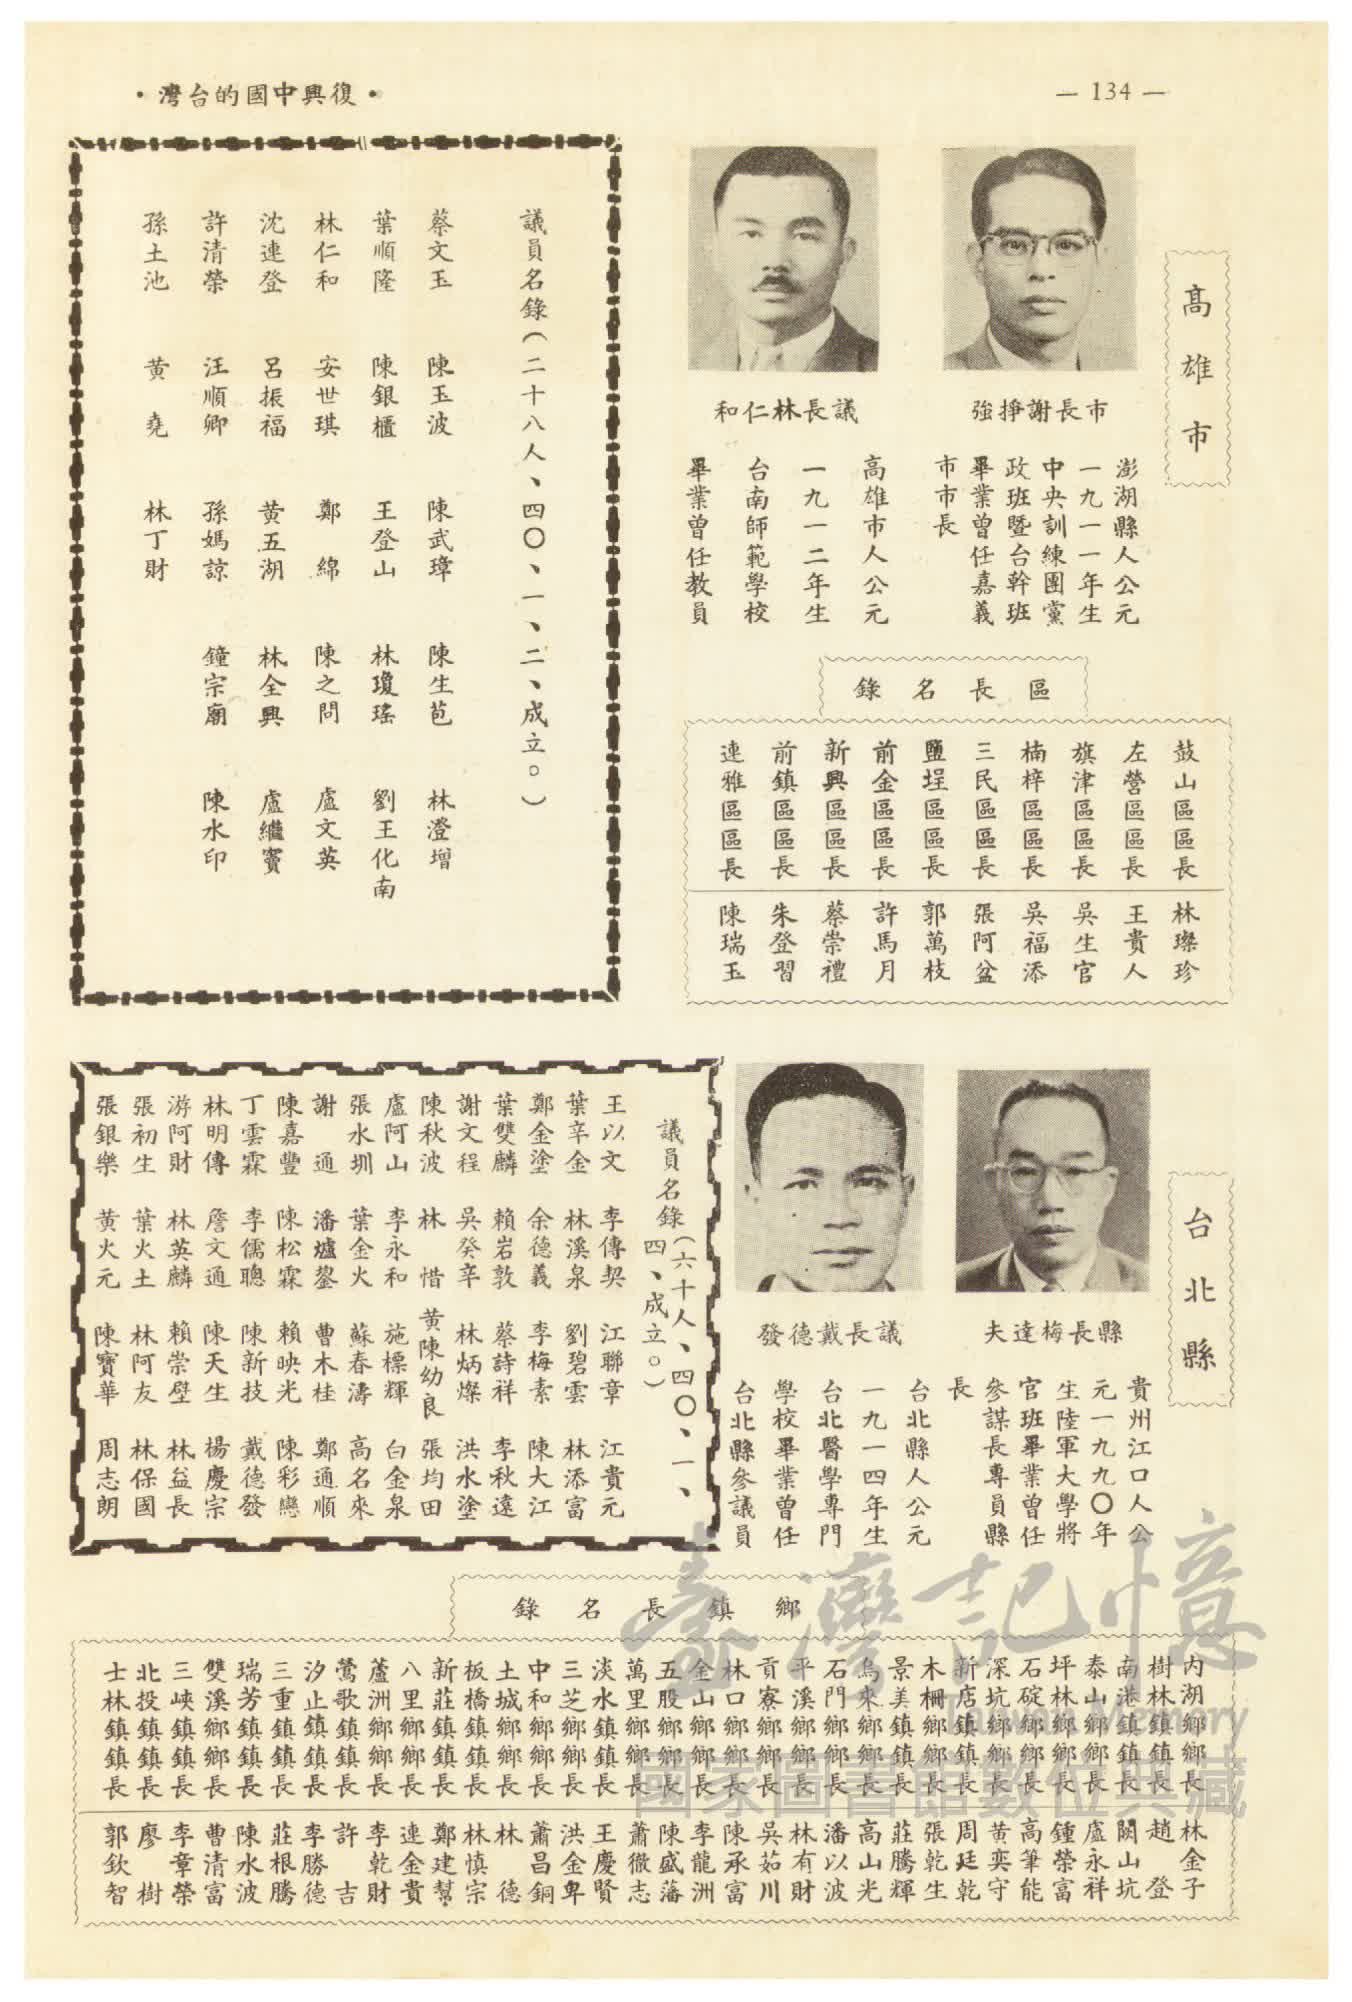 • 復興中國的台灣 •
— 134 —
高雄市
市長謝掙強
澎湖縣人公元
一九一一年生
中央訓練團黨
政班暨台幹班
畢業曾任嘉義
市市長
議長林仁和
高雄市人公元
一九一二年生
台南師範學校
畢業曾任教員
區長名錄
鼓山區區長 林璨珍
左營區區長 王貴人
旗津區區長 吳生官
楠梓區區長 吳福添
三民區區長 張阿盆
鹽埕區區長 郭萬枝
前金區區長 許馬月
新興區區長 蔡崇禮
前鎮區區長 朱登習
連雅區區長 陳瑞玉
議員名錄(二十八人、四〇、一、二、成立。)
蔡文玉 陳玉波 陳武璋 陳生苞 林澄增
葉順隆 陳銀櫃 王登山 林瓊瑤 劉王化南
林仁和 安世琪 鄭綿 陳之問 盧文英
沈連登 呂振福 黃五湖 林全興 盧繼寶
許清榮 汪順卿 孫媽諒 鐘宗廟 陳水印
孫土池 黃堯 林丁財
台北縣
縣長梅達夫
貴州江口人公
元一九九〇年
生陸軍大學將
官班畢業曾任
參謀長專員縣
長
議長戴德發
台北縣人公元
一九一四年生
台北醫學專門
學校畢業曾任
台北縣參議員
議員名錄(六十人、四〇、一、
四、成立。)
王以文 李傳契 江聯章 江貴元
葉辛金 林溪泉 劉碧雲 林添富
鄭金塗 余德義 李梅素 陳大江
葉雙麟 賴岩敦 蔡詩祥 李秋遠
謝文程 吳癸辛 林炳燦 洪水塗
陳秋波 林惜 黃陳幼良 張均田
盧阿山 李永和 施標輝 白金泉
張水圳 葉金火 蘇春濤 高名來
謝通 潘爐鋆 曹木桂 鄭通順
陳嘉豐 陳松霖 賴映光 陳彩戀
丁雲霖 李儒聰 陳新技 戴德發
林明傳 詹文通 陳天生 楊慶宗
游阿財 林英麟 賴崇壁 林益長
張初生 葉火土 林阿友 林保國
張銀樂 黃火元 陳寶華 周志朗
鄉鎮長名錄
內湖鄉鄉長 林金子
樹林鎮鎮長 趙登
南港鎮鎮長 闕山坑
泰山鄉鄉長 盧永祥
坪林鄉鄉長 鍾榮富
石碇鄉鄉長 高筆能
深坑鄉鄉長 黃奕守
新店鎮鎮長 周廷乾
木柵鄉鄉長 張乾生
景美鎮鎮長 莊騰輝
烏來鄉鄉長 高山光
石門鄉鄉長 潘以波
平溪鄉鄉長 林有財
貢寮鄉鄉長 吳茹川
林口鄉鄉長 陳承富
金山鄉鄉長 李龍洲
五股鄉鄉長 陳盛藩
萬里鄉鄉長 蕭微志
淡水鎮鎮長 王慶賢
三芝鄉鄉長 洪金卑
中和鄉鄉長 蕭昌銅
土城鄉鄉長 林德
板橋鎮鎮長 林慎宗
新莊鎮鎮長 鄭建幫
八里鄉鄉長 連金貴
蘆洲鄉鄉長 李乾財
鶯歌鎮鎮長 許吉
汐止鎮鎮長 李勝德
三重鎮鎮長 莊根騰
瑞芳鎮鎮長 陳水波
雙溪鄉鄉長 曹清富
三峽鎮鎮長 李章榮
北投鎮鎮長 廖樹
士林鎮鎮長 郭欽智
臺灣記憶
Taiwan Memory
國家圖書館數位典藏